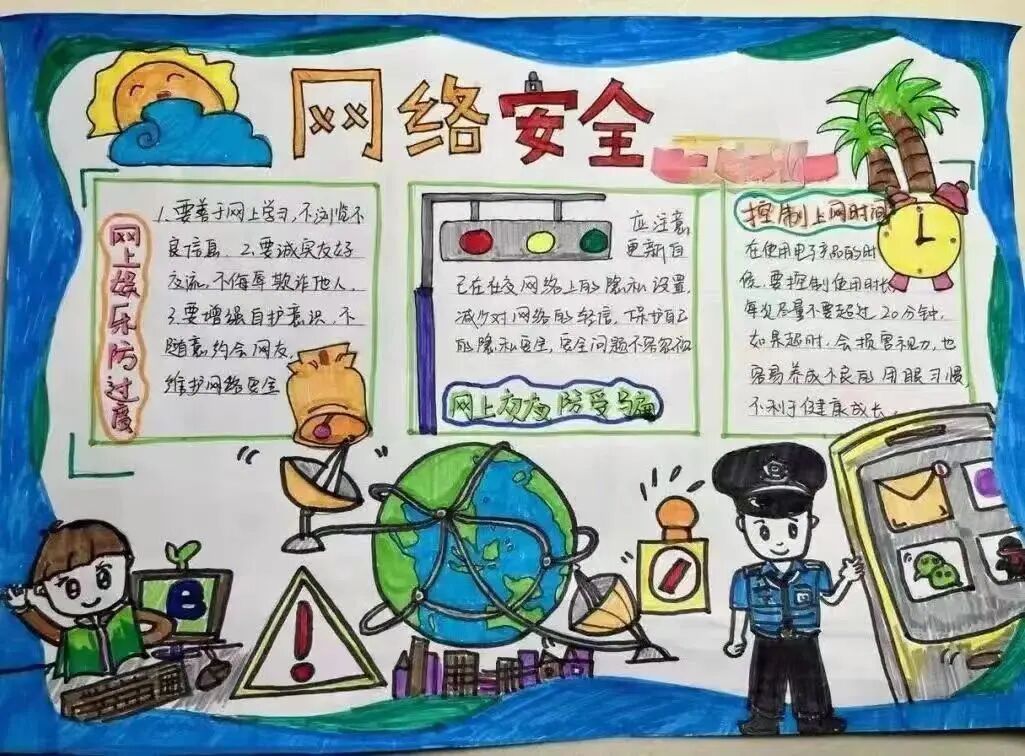 网络安全
网上娱乐防过度
1.要善于网上学习,不浏览不
良信息. 2.要诚实友好
交流,不侮辱欺诈他人.
3.要增强自护意识,不
随意约会网友.
维护网络安全
应注意
更新自
己在社交网络上的隐私设置,
减少对网络的轻信,保护自己
的隐私安全,安全问题不容忽视
网上交友防受骗
控制上网时间
在使用电子产品的时
候,要控制使用时长
每次尽量不要超过20分钟,
如果超时,会损害视力,也
容易养成不良的用眼习惯,
不利于健康成长.
e